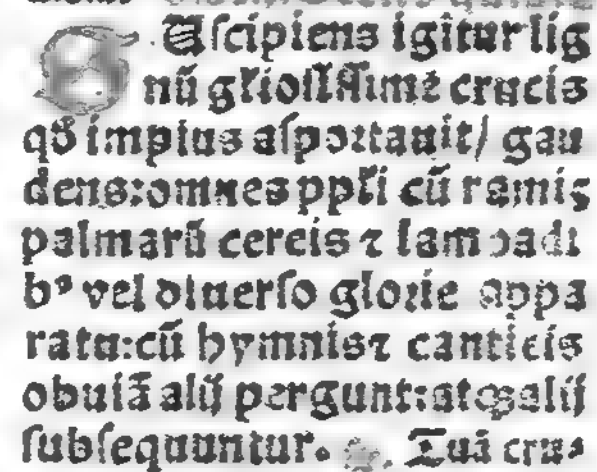 SUſcipiens igitur lig
nũ gr̃ioſiſſime crucis
qđ impius aſportauit/ gau
dens: omnes ppl̃i cũ ramis
palmarũ cereis ⁊ lampadi
bꝰ vel diuerſo glorie appa
ratu: cũ hymnis ⁊ canticis
obuiã alij pergunt: atqꝫ alij
ſubſequuntur. Tuã cru⸗